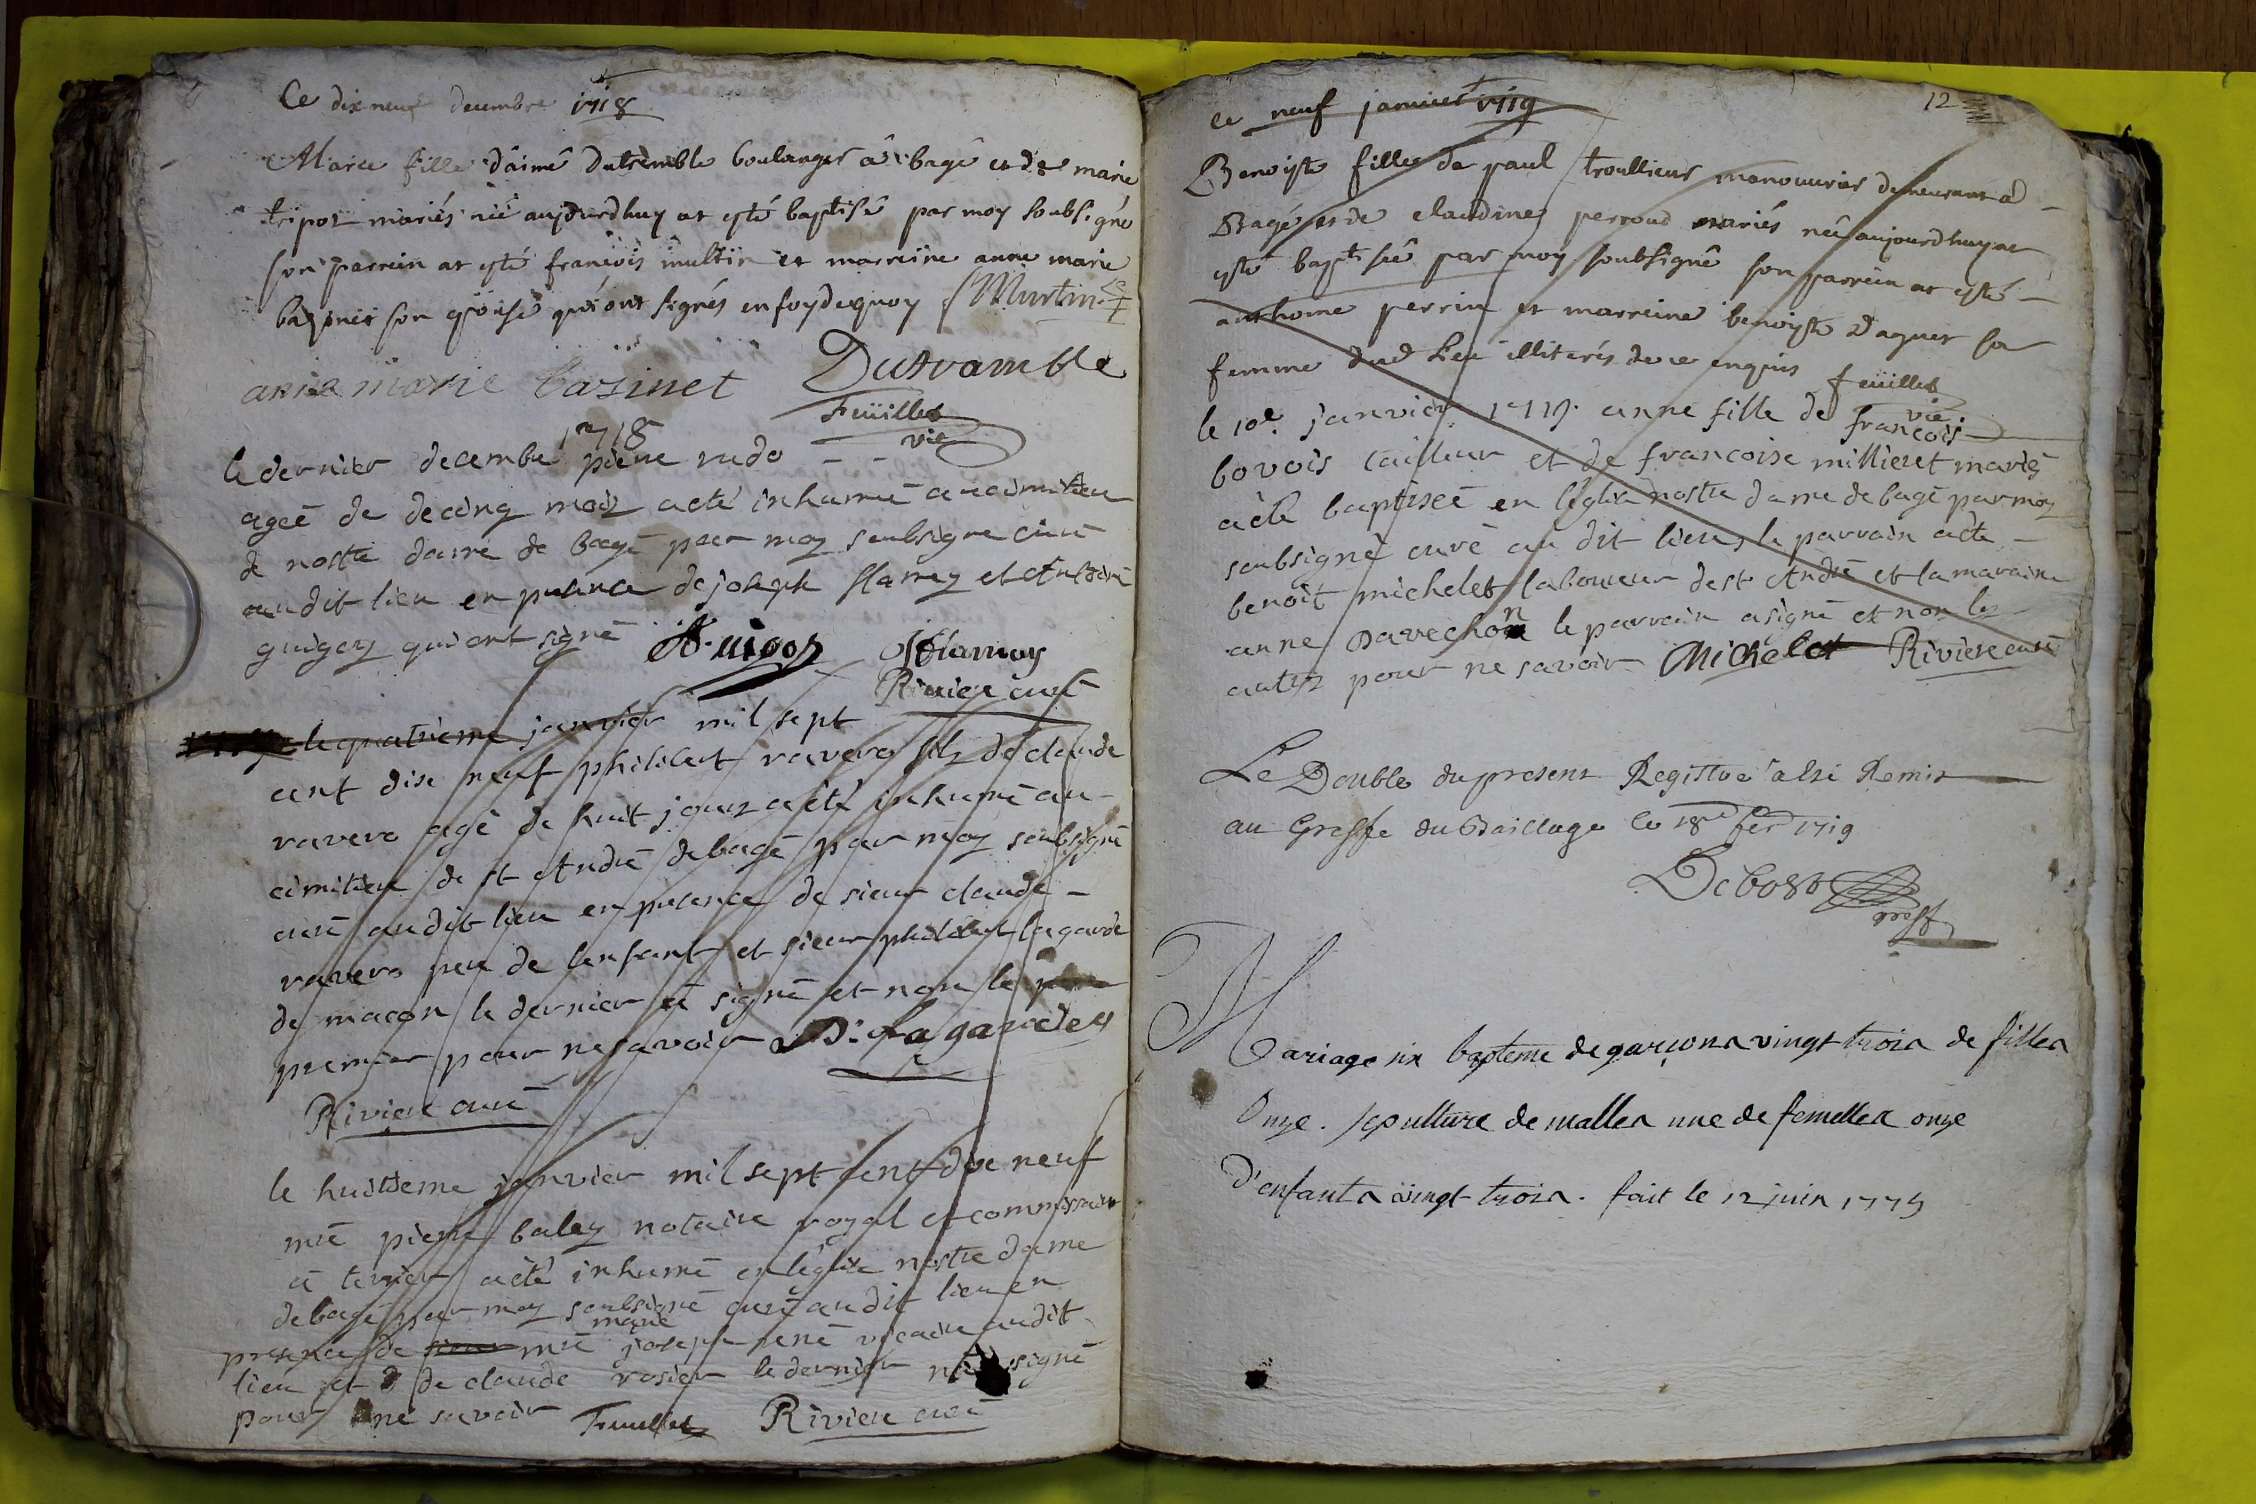 Ce dix neuf decembre 1718
Marie fille d'aimé dutremble boulanger à bagé et de marie
tripot mariés née aujourdhuy at esté baptisé par moy soubsigné
son parrein at esté francois multin et marreine anne marie
qui ont signés en foy de quoy f Murtin
anne marie bazinet Dutramble
feüillet
vic.
le dernier decembre 1718 pierre rudo
ageé de de cinq mois a eté inhumé au cimitiere
de nostre dame de bagé par moy soubsigne curé
audit lieu en presence de joseph flamey et Antoine
guigoz qui ont signé A. uigoz Jflamoy
Riviere curé
le quatrieme janvier mil sept
cent dise neuf philibert ravero fils de claude
ravero agé de huit jours a eté inhumé au
cimitiere de st André de bagé par moy soubsigné
curé audit lieu en presence de sieur claude
ravero pere de lenfant et sieur philibert lagarde
de macon le dernier a signé et non le
premier pour ne savoir P. Lagardes
Riviere curé
le huitieme janvier mil sept cent dise neuf
mre pierre baley notaire royal et commissaire
à terrier a eté inhumé en léglise nostre dame
de bagé par moy soubsigné curé audit lieu en
presence de mre marie joseph rené vicaire audit
lieu et de claude rosier le dernier na signé
pour ne savoir Feuillet Riviere curé
ce neuf janvier 1719 12
Benoiste fille de paul troullieur manouvrier demeurant a
Bagé et de claudine perroud mariés née aujourdhuy at
esté baptisée par moy soubsigné son parrein at esté
anthome perrin et marreine benoiste Daguer sa
femme dud lieu illiterés de ce enquis feüillet
vic.
le 10e janvier 1719. anne fille de francois
bovois tailleur et de francoise millieret mariés
a eté baptiseé en léglise nostre dame de bagé par moy
soubsigné curé au dit lieu, le parrain a eté
benoit michelet laboureur de st André et la maraine
anne Davechon le parrain a signé et non les
autres pour ne savoir Michelet Riviere curé
Le Double du present Registre a esté Remis
au Greffe du Baillage le 18e fer 1719
Debost
greff
Mariage six bapteme de garçons vingt trois de filles
Onze. sepulture de malles une de femelles onze
D'enfants vingt trois. fait le 12 juin 1775